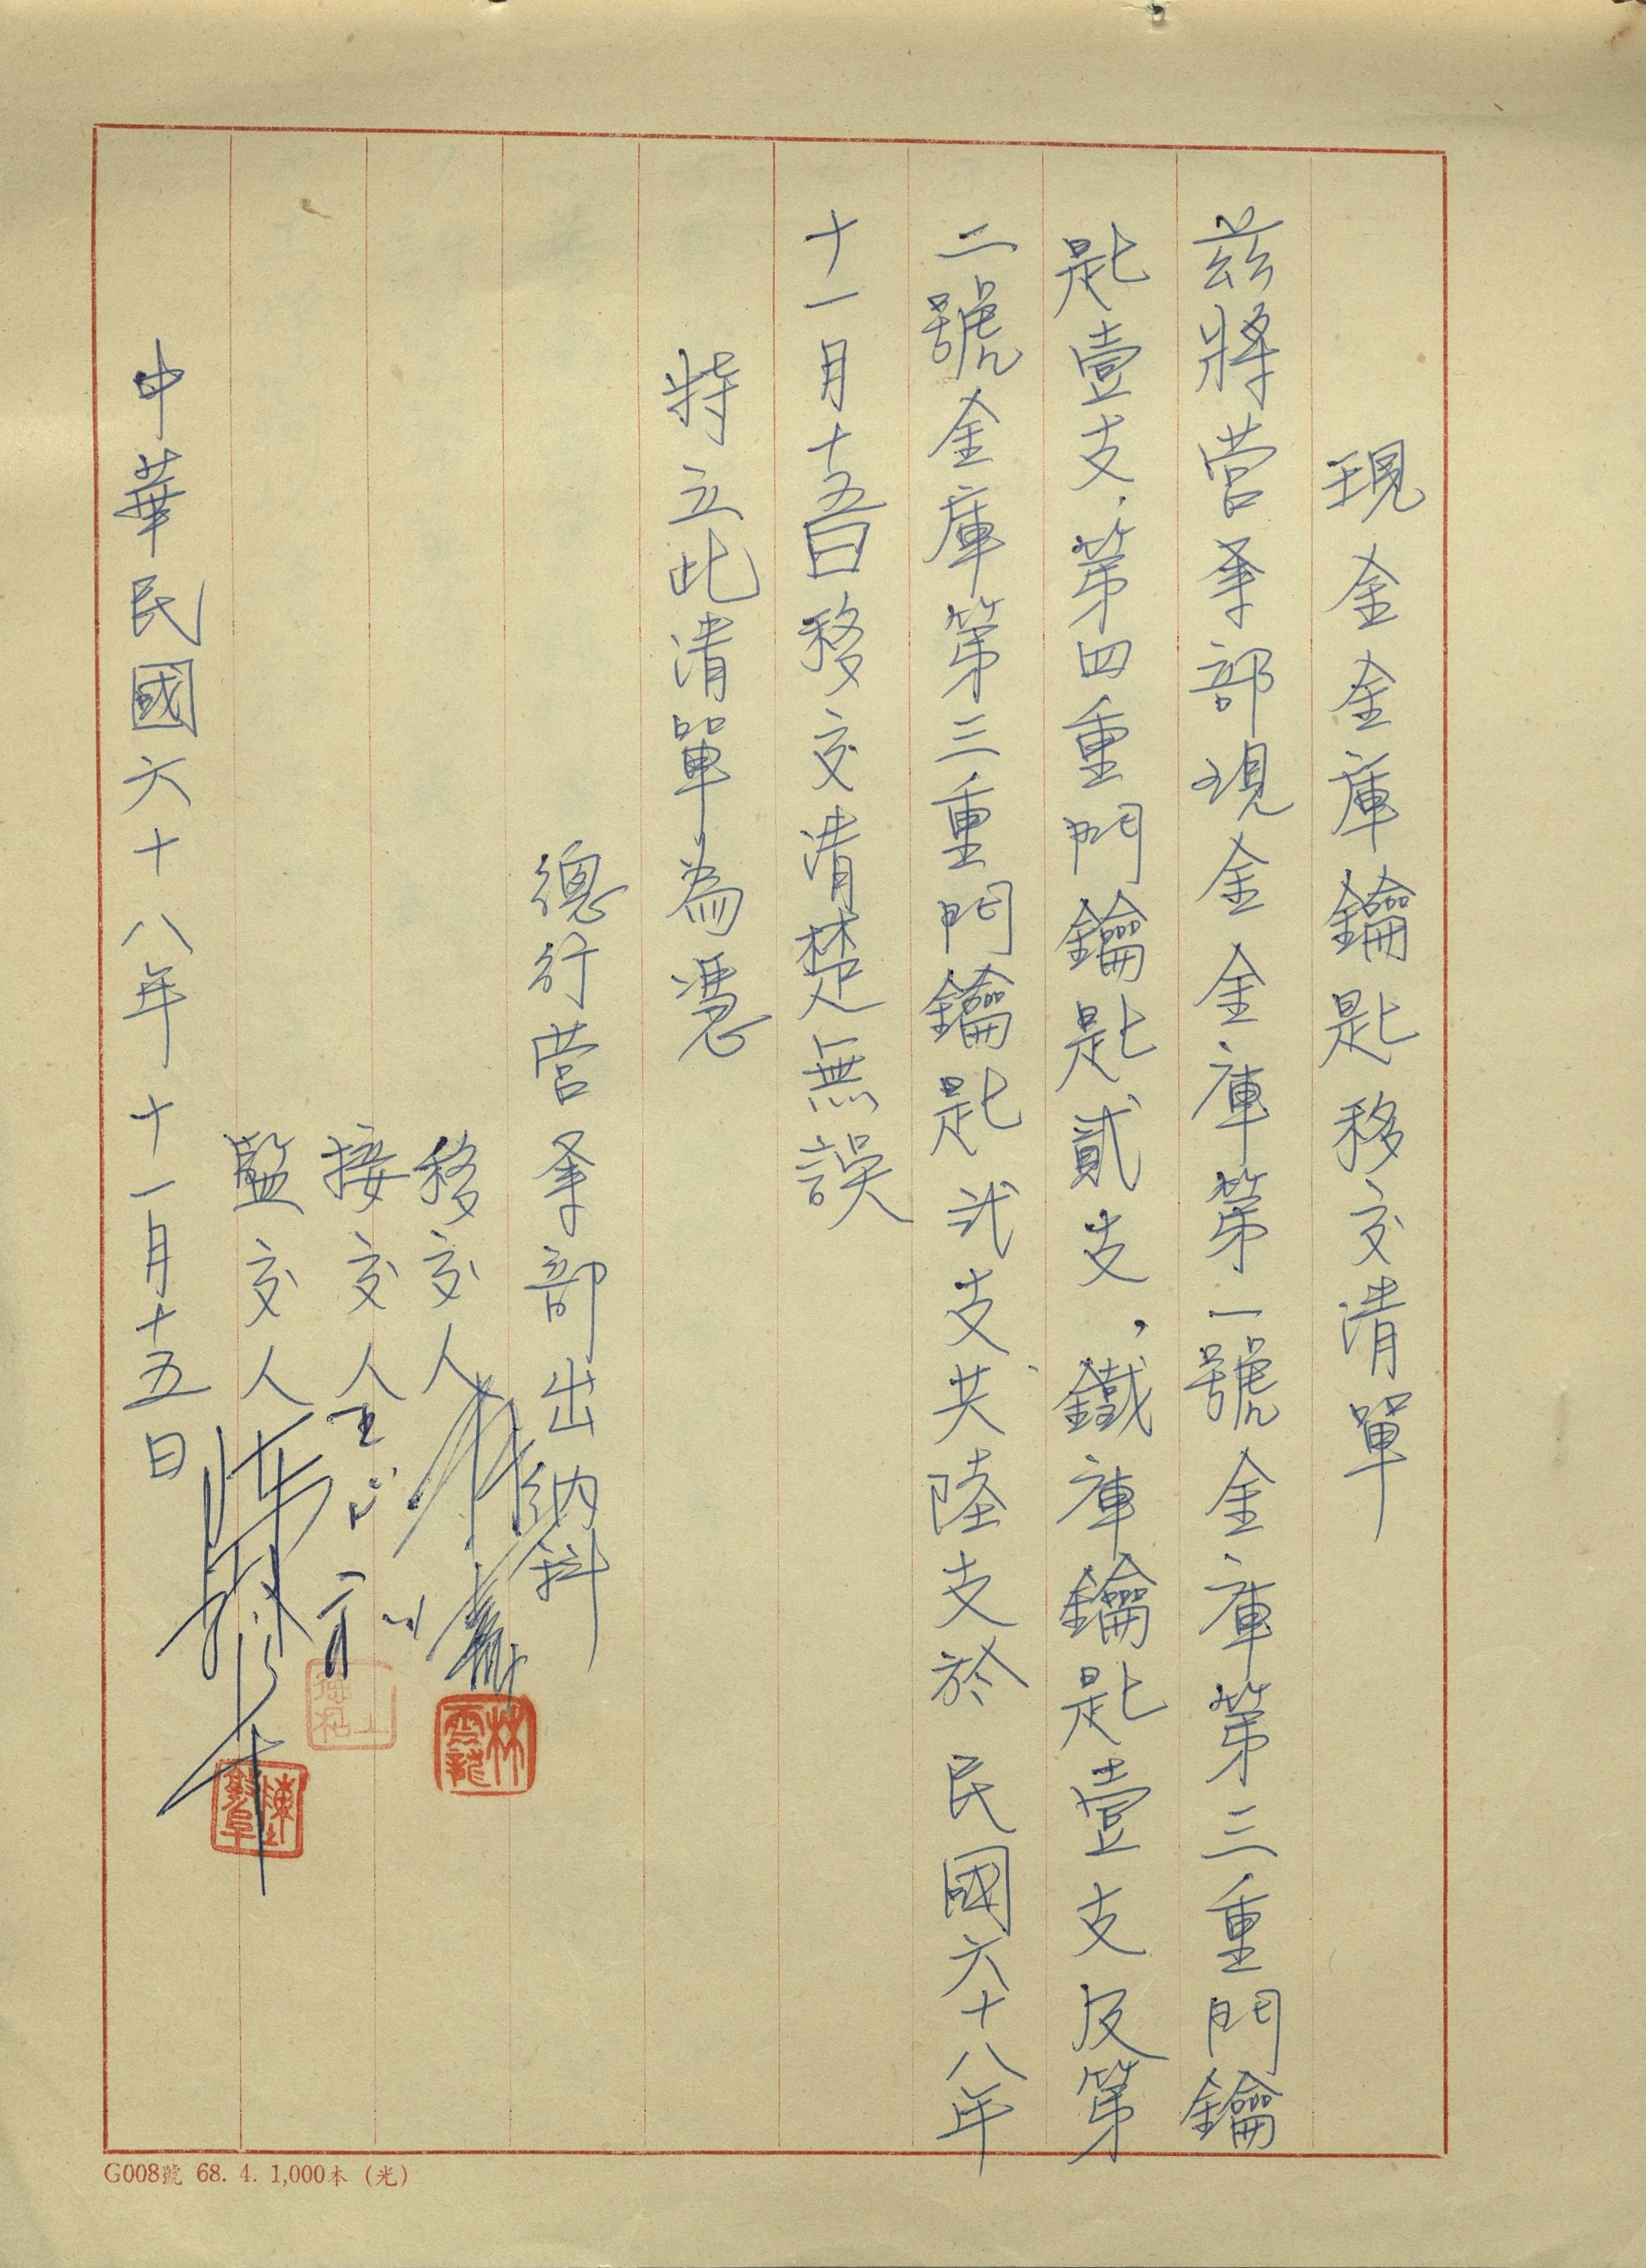 現金金庫鑰匙移交清單
茲將營業部現金金庫第一號金庫第三重門鑰
匙壹支，第四重門鑰匙貳支，鐵庫鑰匙壹支及第
二號金庫第三重門鑰匙貳支共陸支於民國六十八年
十一月十五日移交清楚無誤
特立此清單為憑
總行營業部出納科
移交人
林雲龍
接交人
監交人
中華民國六十八年十一月十五日
G008號 68. 4. 1,000本 (光)